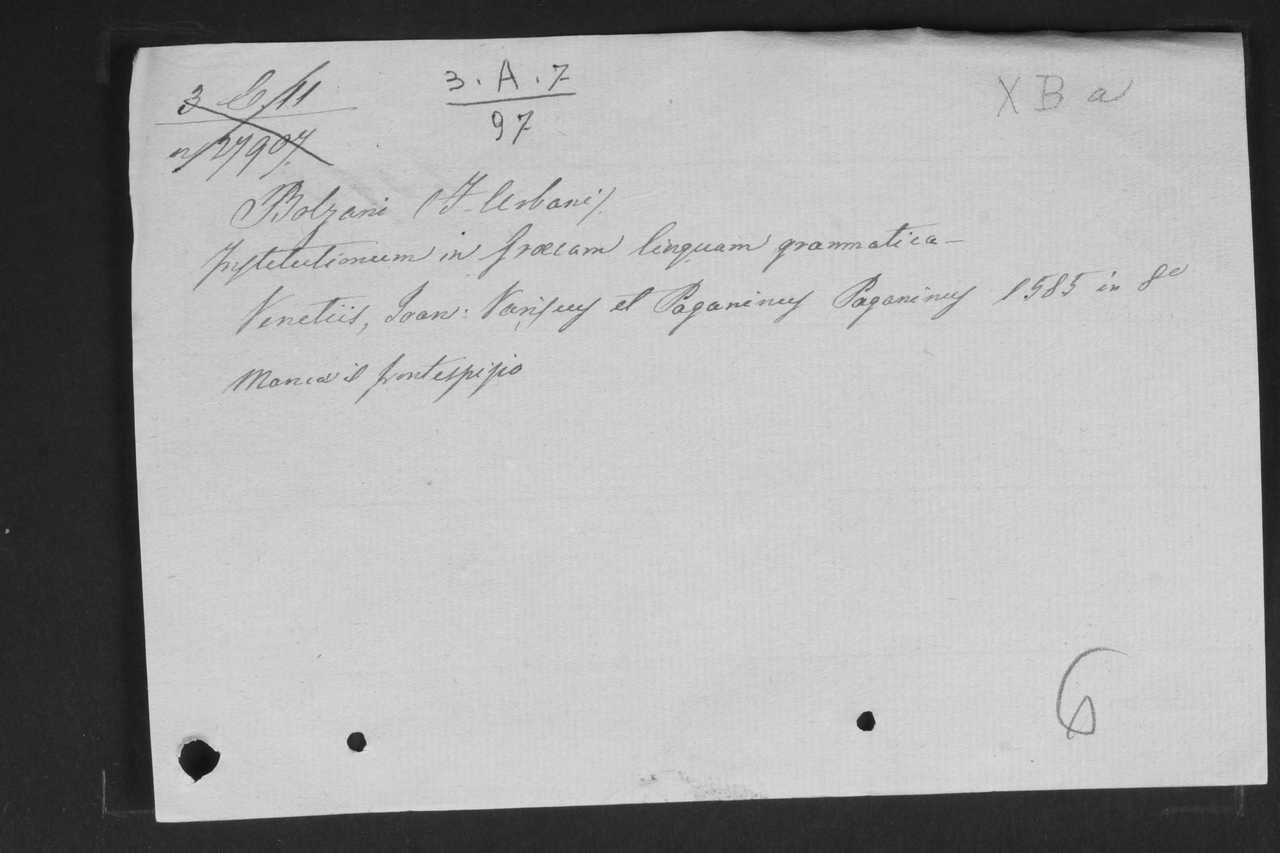 3 C/11
n/27907.
3. A. 7
97
X B a
Bolzani (F. Urbani).
Institutionum in græcam linguam grammatica-
Venetiis, Joan: Variscus et Paganinus Paganinus 1585 in 8º
Manca il frontespizio
6